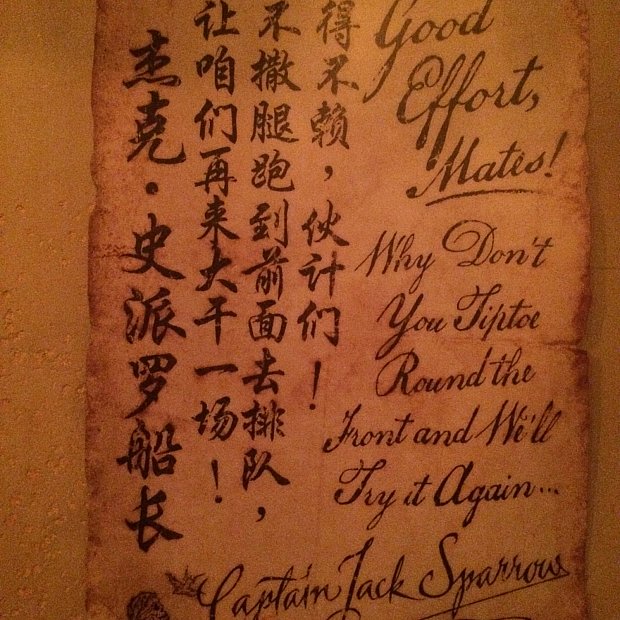 得不赖，伙计们！
不撒腿跑到前面去排队，
让咱们再来大干一场！
杰克·史派罗船长
Good
Effort,
Mates!
Why Don't
You Tiptoe
Round the
Front and We'll
Try it Again...
Captain Jack Sparrow